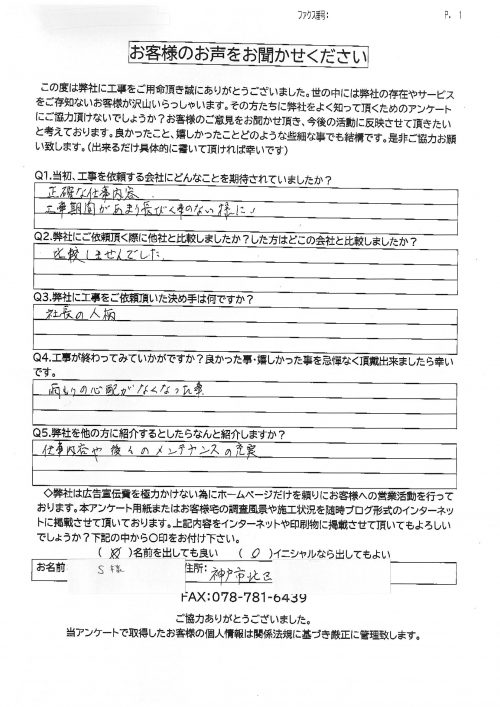 ファクス番号:
P. 1
お客様のお声をお聞かせください
この度は弊社に工事をご用命頂き誠にありがとうございました。世の中には弊社の存在やサービス
をご存知ないお客様が沢山いらっしゃいます。その方たちに弊社をよく知って頂くためのアンケート
にご協力頂けないでしょうか?お客様のご意見をお聞かせ頂き、今後の活動に反映させて頂きたい
と考えております。良かったこと、嬉しかったことどのような些細な事でも結構です。是非ご協力お願
い致します。(出来るだけ具体的に書いて頂ければ幸いです)
Q1.当初、工事を依頼する会社にどんなことを期待されていましたか?
正確な仕事内容
工事期間があまり長びく事のない様に
Q2.弊社にご依頼頂く際に他社と比較しましたか?した方はどこの会社と比較しましたか?
比較しませんでした
Q3.弊社に工事をご依頼頂いた決め手は何ですか?
社長の人柄
Q4.工事が終わってみていかがですか?良かった事・嬉しかった事を忌憚なく頂戴出来ましたら幸い
です。
雨もりの心配がなくなった事
Q5.弊社を他の方に紹介するとしたらなんと紹介しますか?
仕事内容や後々のメンテナンスの充実
◇弊社は広告宣伝費を極力かけない為にホームページだけを頼りにお客様への営業活動を行って
おります。本アンケート用紙またはお客様宅の調査風景や施工状況を随時ブログ形式のインターネッ
トに掲載させて頂いております。上記内容をインターネットや印刷物に掲載させて頂いてもよろしい
でしょうか?下記の中から〇印をお付け下さい。
( )名前を出しても良い ( 〇 )イニシャルなら出してもよい
お名前 S様 住所: 神戸市北区
FAX:078-781-6439
ご協力ありがとうございました。
当アンケートで取得したお客様の個人情報は関係法規に基づき厳正に管理致します。